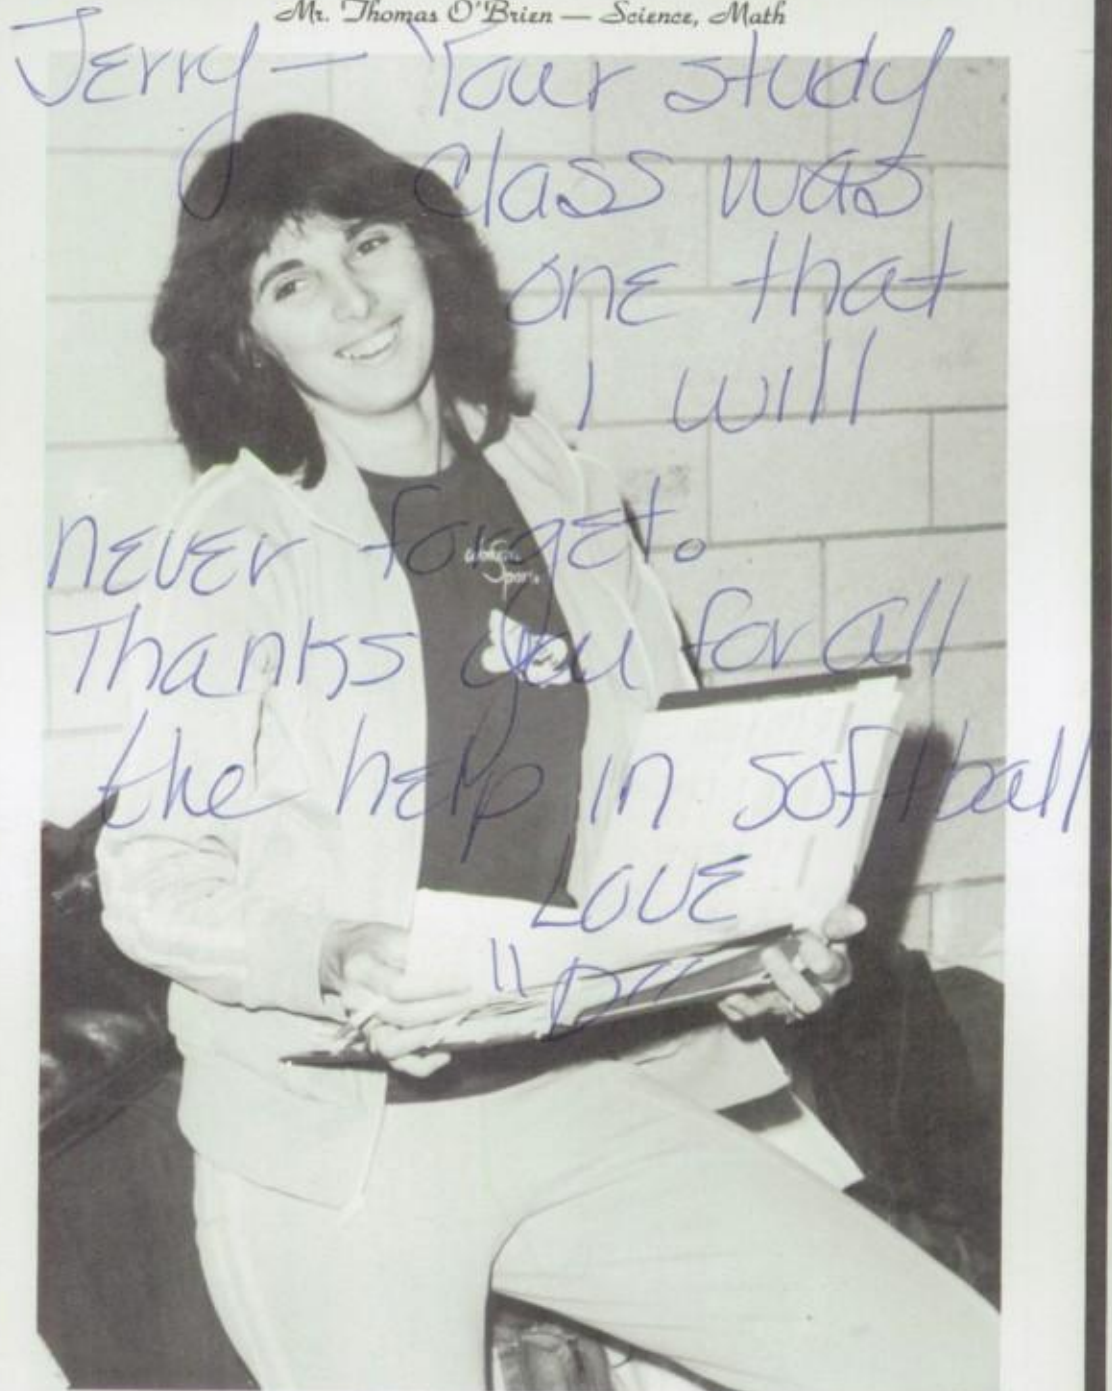 Mr. Thomas O'Brien — Science, Math
Jerry — Your study
class was
one that
I will
never forget.
Thanks you for all
the help in softball
Love
"D"